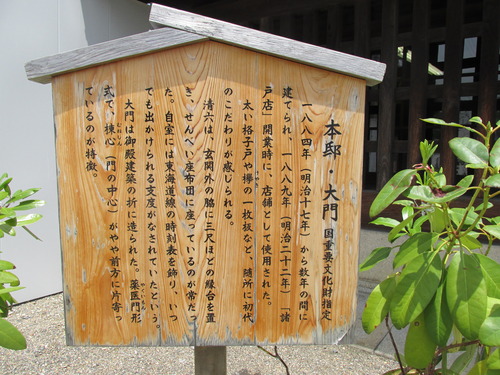 本邸・大門 国重要文化財指定
一八八四年（明治十七年）から数年の間に
建てられ、一八八九年（明治二十二年）「諸
戸店」開業時に、店舗として使用された。
太い格子戸や欅の一枚板など、随所に初代
のこだわりが感じられる。
清六は、玄関外の脇に三尺ほどの縁台を置
き、せんべい座布団に座っているのが常だっ
た。自室には東海道線の時刻表を飾り、いつ
でも出かけられる支度がなされていたという。
大門は御殿建築の折に造られた。薬医門形
式で、棟心（門の中心）がやや前方に片寄っ
ているのが特徴。